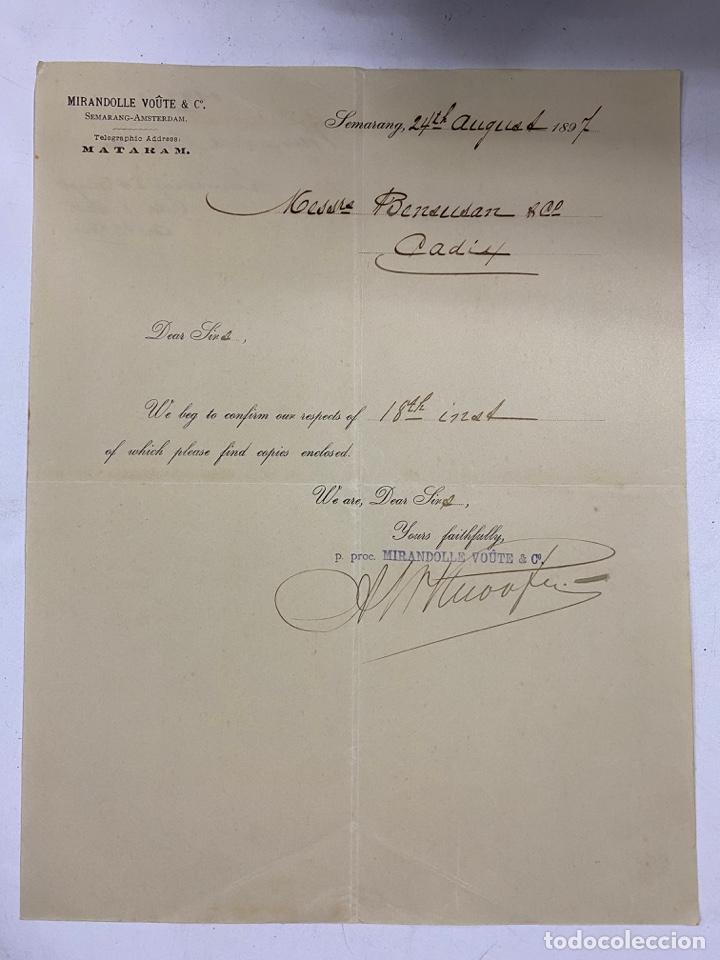 MIRANDOLLE VOÛTE & Cº.
SEMARANG-AMSTERDAM.
Telegraphic Address:
MATARAM.
Semarang, 24th August 1897
Messrs Bensusan & Co
Cadix
Dear Sirs,
We beg to confirm our respects of 18th inst
of which please find copies enclosed.
We are, Dear Sirs,
Yours faithfully,
p. proc. MIRANDOLLE VOÛTE & Cº.
todocoleccion
todocoleccion.net